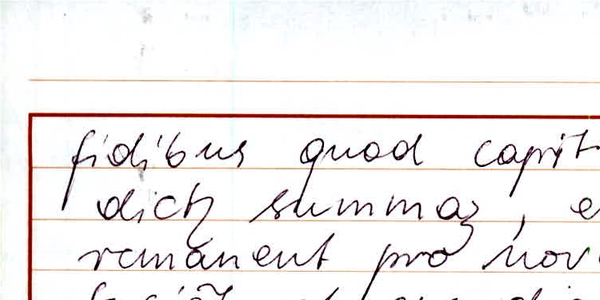 fidibus quod capit
dictȝ summaȝ, e
remanent pro nov